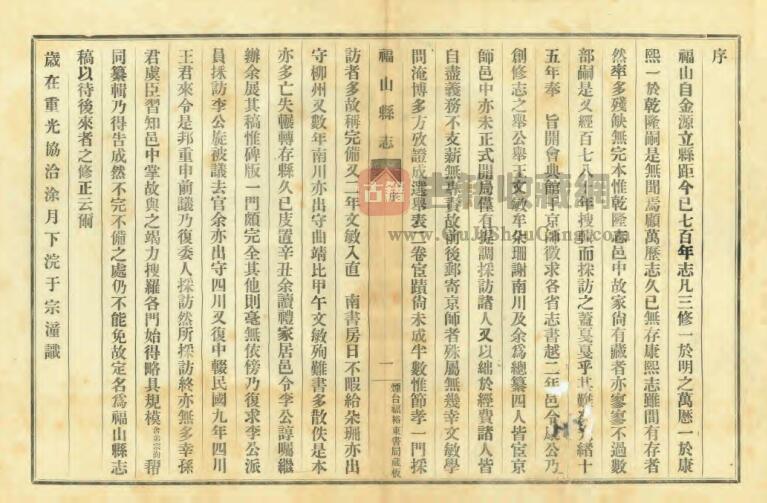 序
福山自金源立縣距今已七百年志凡三修一於明之萬歷一於康
熙一於乾隆嗣是無聞焉顧萬歷志久已無存康熙志雖間有存者
然率多殘缺無完本惟乾隆志邑中故家尚有藏者亦寥寥不過數
部嗣是又經百七八十年搜輯而採訪之蓋戛戛乎其難光緒十
五年奉 旨開會典館于京師徵求各省志書越二年邑令康公乃
創修志之舉公舉王文敏牟朵珊謝南川及余為總纂四人皆宦京
師邑中亦未正式開局僅有提調採訪諸人又以絀於經費諸人皆
自盡義務不支薪無專責故前後郵寄京師者殊屬無幾幸文敏學
問淹博多方攷證成選舉表二卷宦蹟尚未成半數惟節孝一門採
福山縣志
一
煙台福裕東書局藏板
訪者多故稱完備又二年文敏入直 南書房日不暇給朵珊亦出
守柳州又數年南川亦出守曲靖比甲午文敏殉難書多散佚是本
亦多亡失輾轉存縣久已庋置辛丑余讀禮家居邑令李公諄囑繼
辦余展其稿惟碑版一門頗完全其他則毫無依傍乃復求李公派
員採訪李公旋被議去官余亦出守四川又復中輟民國九年四川
王君來令是邦重申前議乃復委人採訪然所採訪終亦無多幸孫
君虞臣習知邑中掌故與之竭力搜羅各門始得略具規模
同纂輯乃得告成然不完不備之處仍不能免故定名為福山縣志
稿以待後來者之修正云爾
歲在重光協洽涂月下浣于宗潼識
古籍
书籍收藏網
www.GuJiShouCang.com